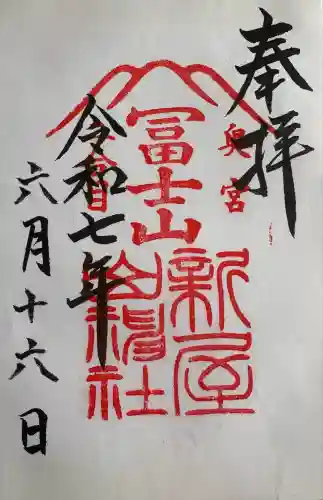 奉拝
奥宮
冨士山
新屋
山神社
令和七年
六月十六日